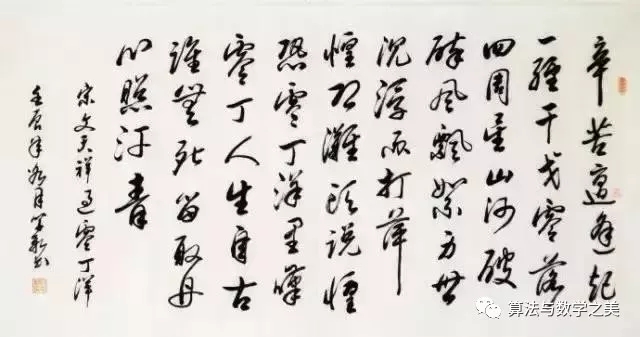 辛苦遭逢起
一經干戈零落
四周星山河破
碎風飄絮身世
沉浮雨打萍
惶恐灘頭說惶
恐零丁洋里嘆
零丁人生自古
誰無死留取丹
心照汗青
宋文天祥過零丁洋
年月書
算法与数学之美